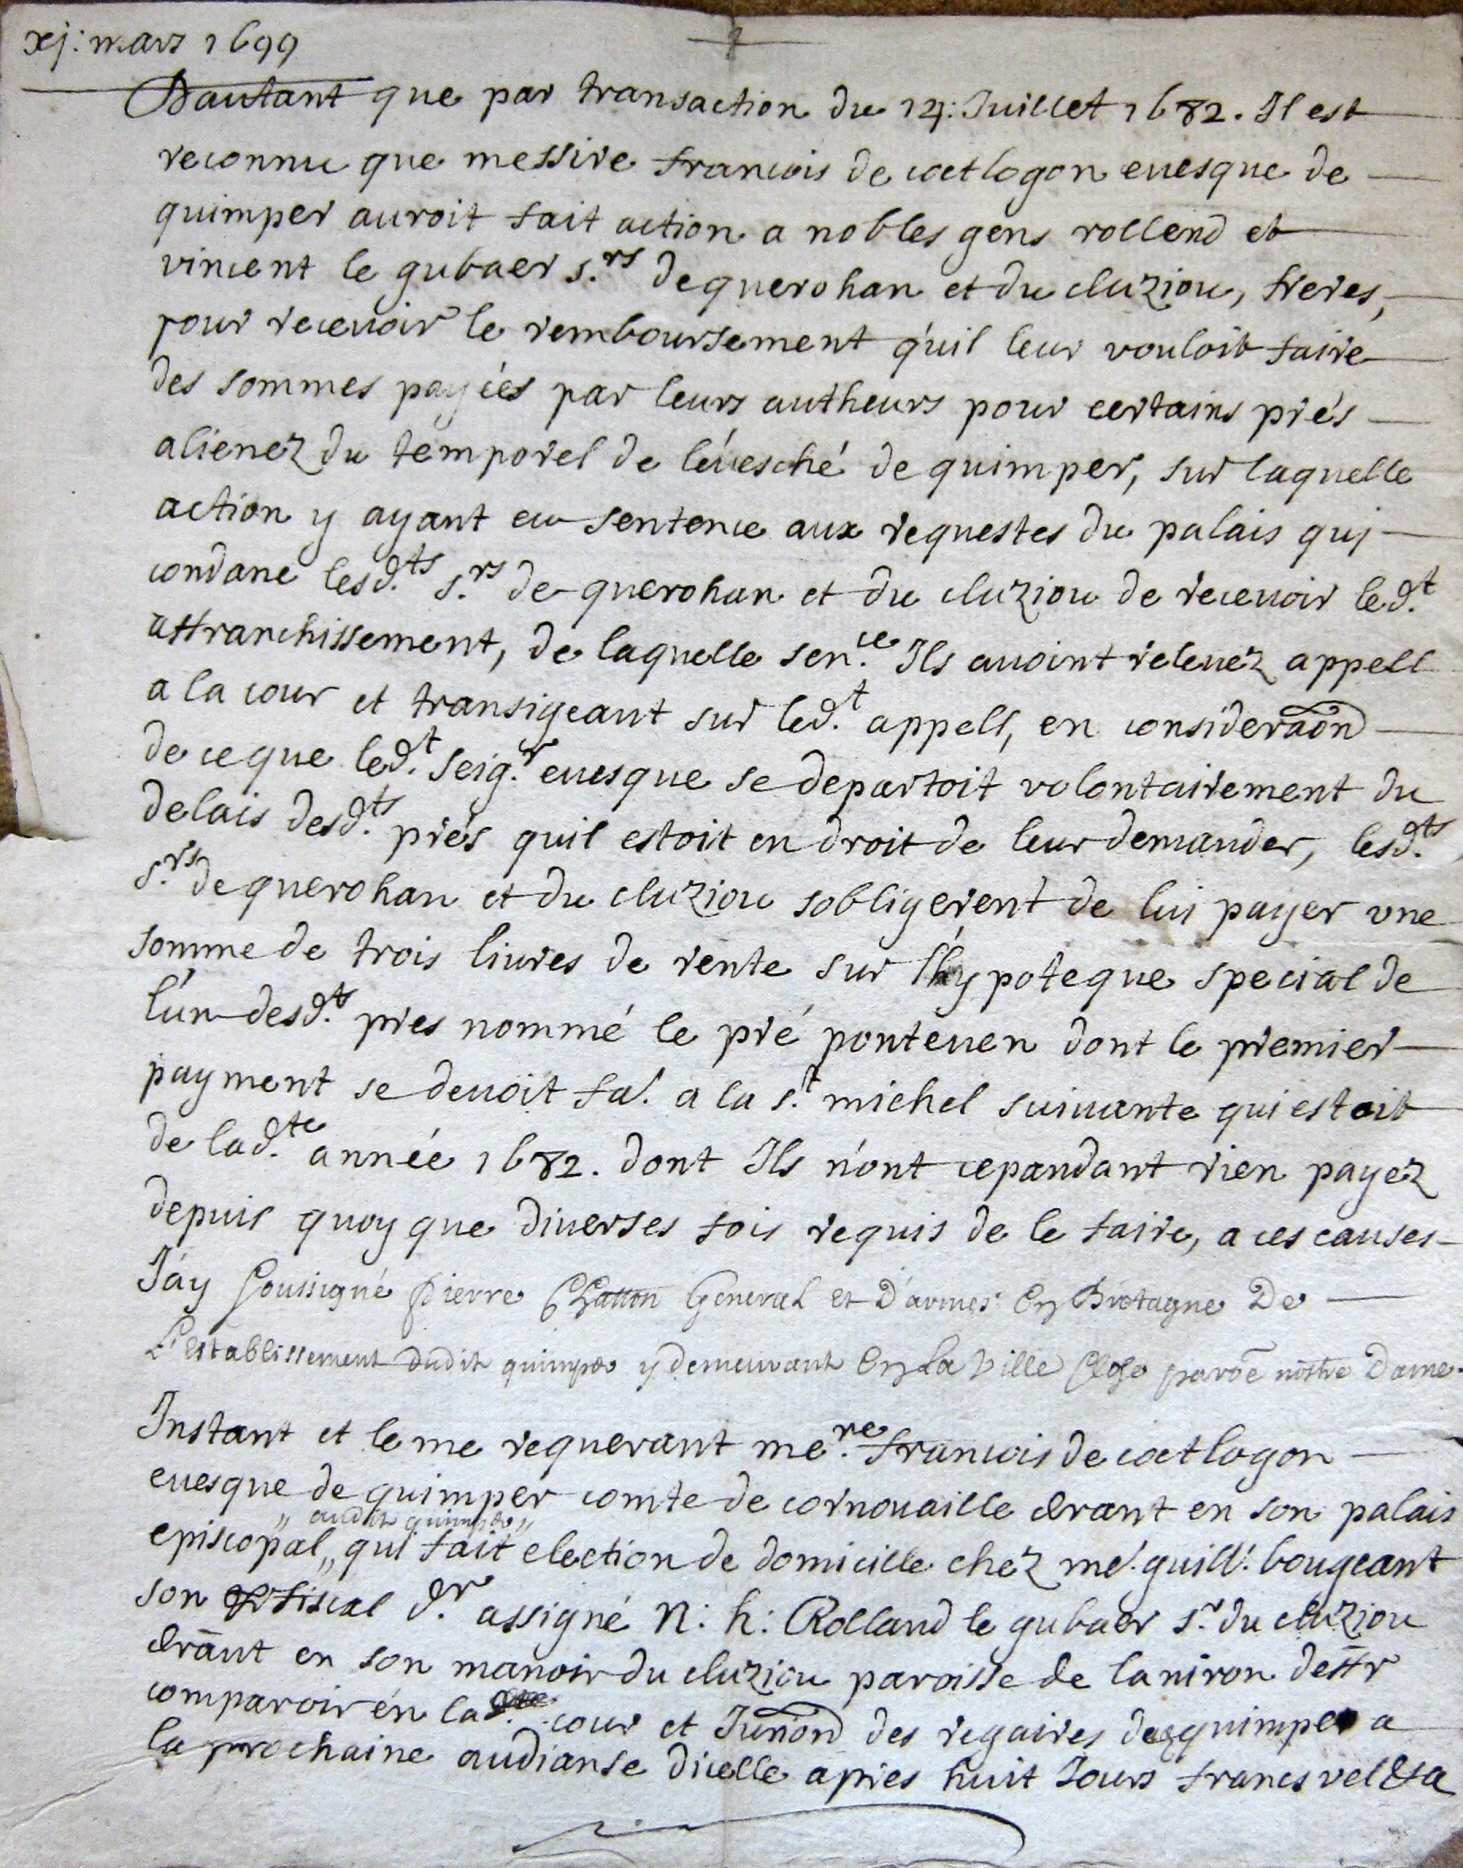 xj: mars 1699
Dautant que par transaction du 14: Juillet 1682. Il est
reconnu que messire francois de coetlogon euesque de
quimper auroit fait action a nobles gens rollend et
vincent le gubaer s.rs de querohan et du cluziou, freres,
pour receuoir le remboursement q'uil leur vouloit faire
des sommes payées par leurs autheurs pour certains prés
alienez du temporel de léuesché de quimper, sur laquelle
action y ayant eu sentence aux requestes du palais qui
condane lesd.ts s.rs de querohan et du cluziou de receuoir led.t
affranchissement, de laquelle sen.ce Ils auoint releuez appell
a la cour et transigeant sur led.t appell, en consideraõn
de ceque led.t seig.r euesque se departoit volontairement du
delais desd.ts prés quil estoit en droit de leur demander, lesd.ts
s.rs de querohan et du cluziou sobligerent de lui payer vne
somme de trois liures de rente sur l'hypoteque special de
l'un desd.ts pres nommé le pré ponteuen dont le premier
payment se deuoit fa.' a la s.t michel suiuante qui estoit
de lad.te année 1682. dont Ils n'ont cepandant rien payez
depuis quoy que diuerses fois requis de le faire, a ces causes
J'ay soussigné Pierre General et D'armes En Bretagne De
L'establissement dudit quimper y demeurant En La Ville Close paroē nōstre Dame.
Instant et le me requerant me.re francois de coetlogon
euesque de quimper comte de cornouaille drant en son palais
episcopal „ audit quimper „ qui fait election de domicille chez me.' guill.' bougeant
son fiscal d.r assigné N: h: Rolland le gubaer s.r du cluziou
drānt en son manoir du cluziou paroisse de laniron deffr
comparoir en la cour et Jur̃on des regaires de quimper a
la prochaine audianse dicelle apres huit Jours francs vel &a